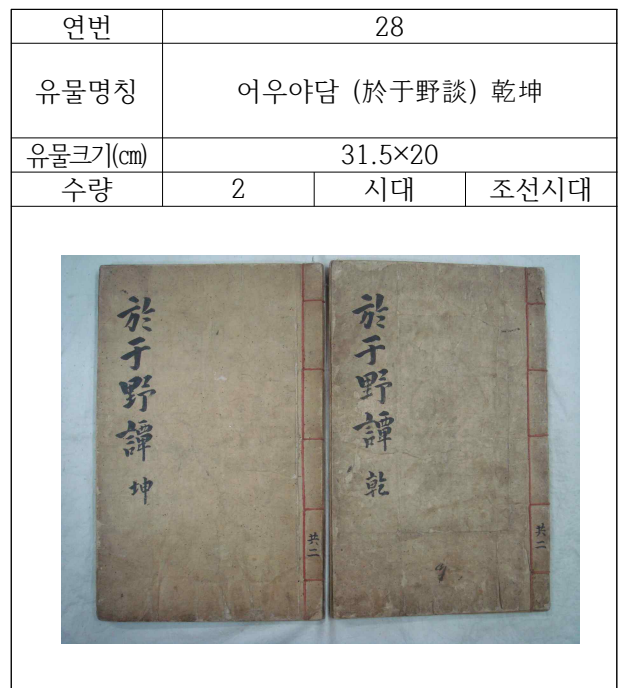 연번 28
유물명칭 어우야담 (於于野談) 乾坤
유물크기(㎝) 31.5×20
수량 2 시대 조선시대
於于野譚 坤
共二
於于野譚 乾
共二